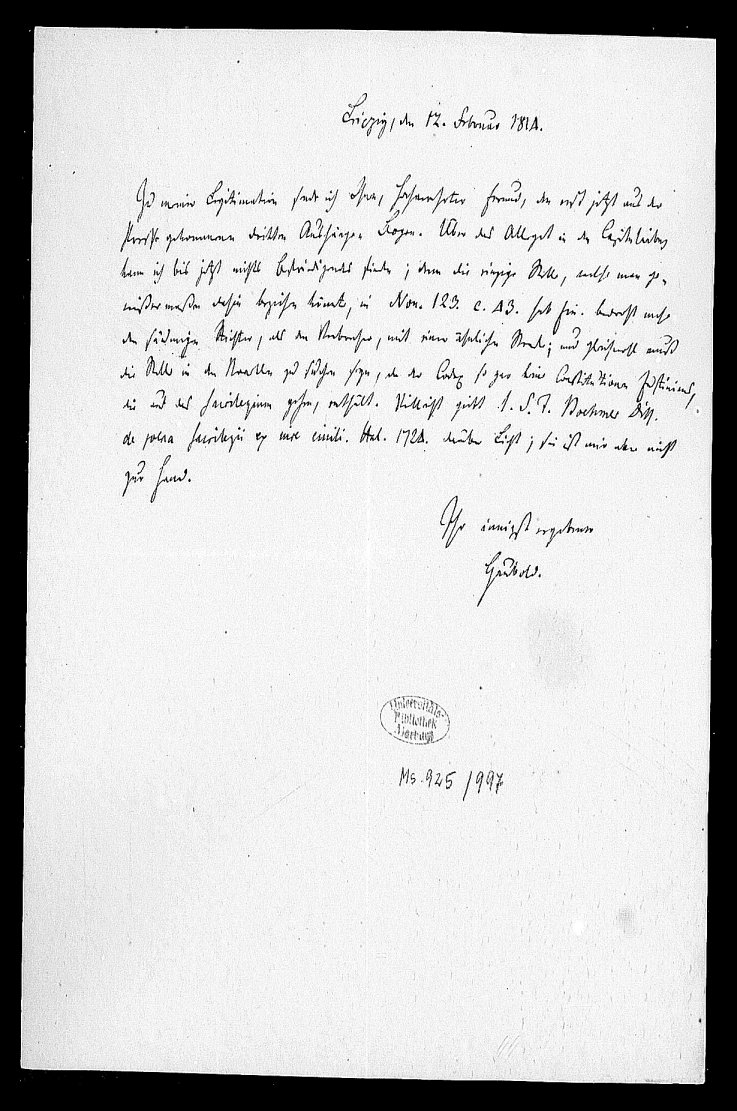 Leipzig, den 12. Februar 1814.
Zu meiner Legitimation sende ich Ihnen, hochverehrter Freund, den erst jetzt aus der
Presse gekommenen dritten Aushänge Bogen. Über das Allegat in den Capitularien
kann ich bis jetzt nichts befriedigendes finden; denn die einzige Stelle, welche man ge-
wissermaßen dahin beziehen könnte, in Nov. 123. c. 43. hat hin. bedroht mehr
den säumigen Richter, als den Verbrecher, mit einer ähnlichen Strafe; und gleichwohl muß
die Stelle in den Novellen zu suchen seyn, da der Codex so gar keine Constitutionen Justinians,
die auf das Sacrilegium gehen, enthält. Vielleicht giebt I. S. F. Boehmer Diss.
de poena sacrilegii ex iure civili. Hal. 1724. darüber Licht; sie ist mir aber nicht
zur Hand.
Ihr innigst ergebener
Haubold.
Universitäts-
Bibliothek
Marburg
Ms. 925 / 997